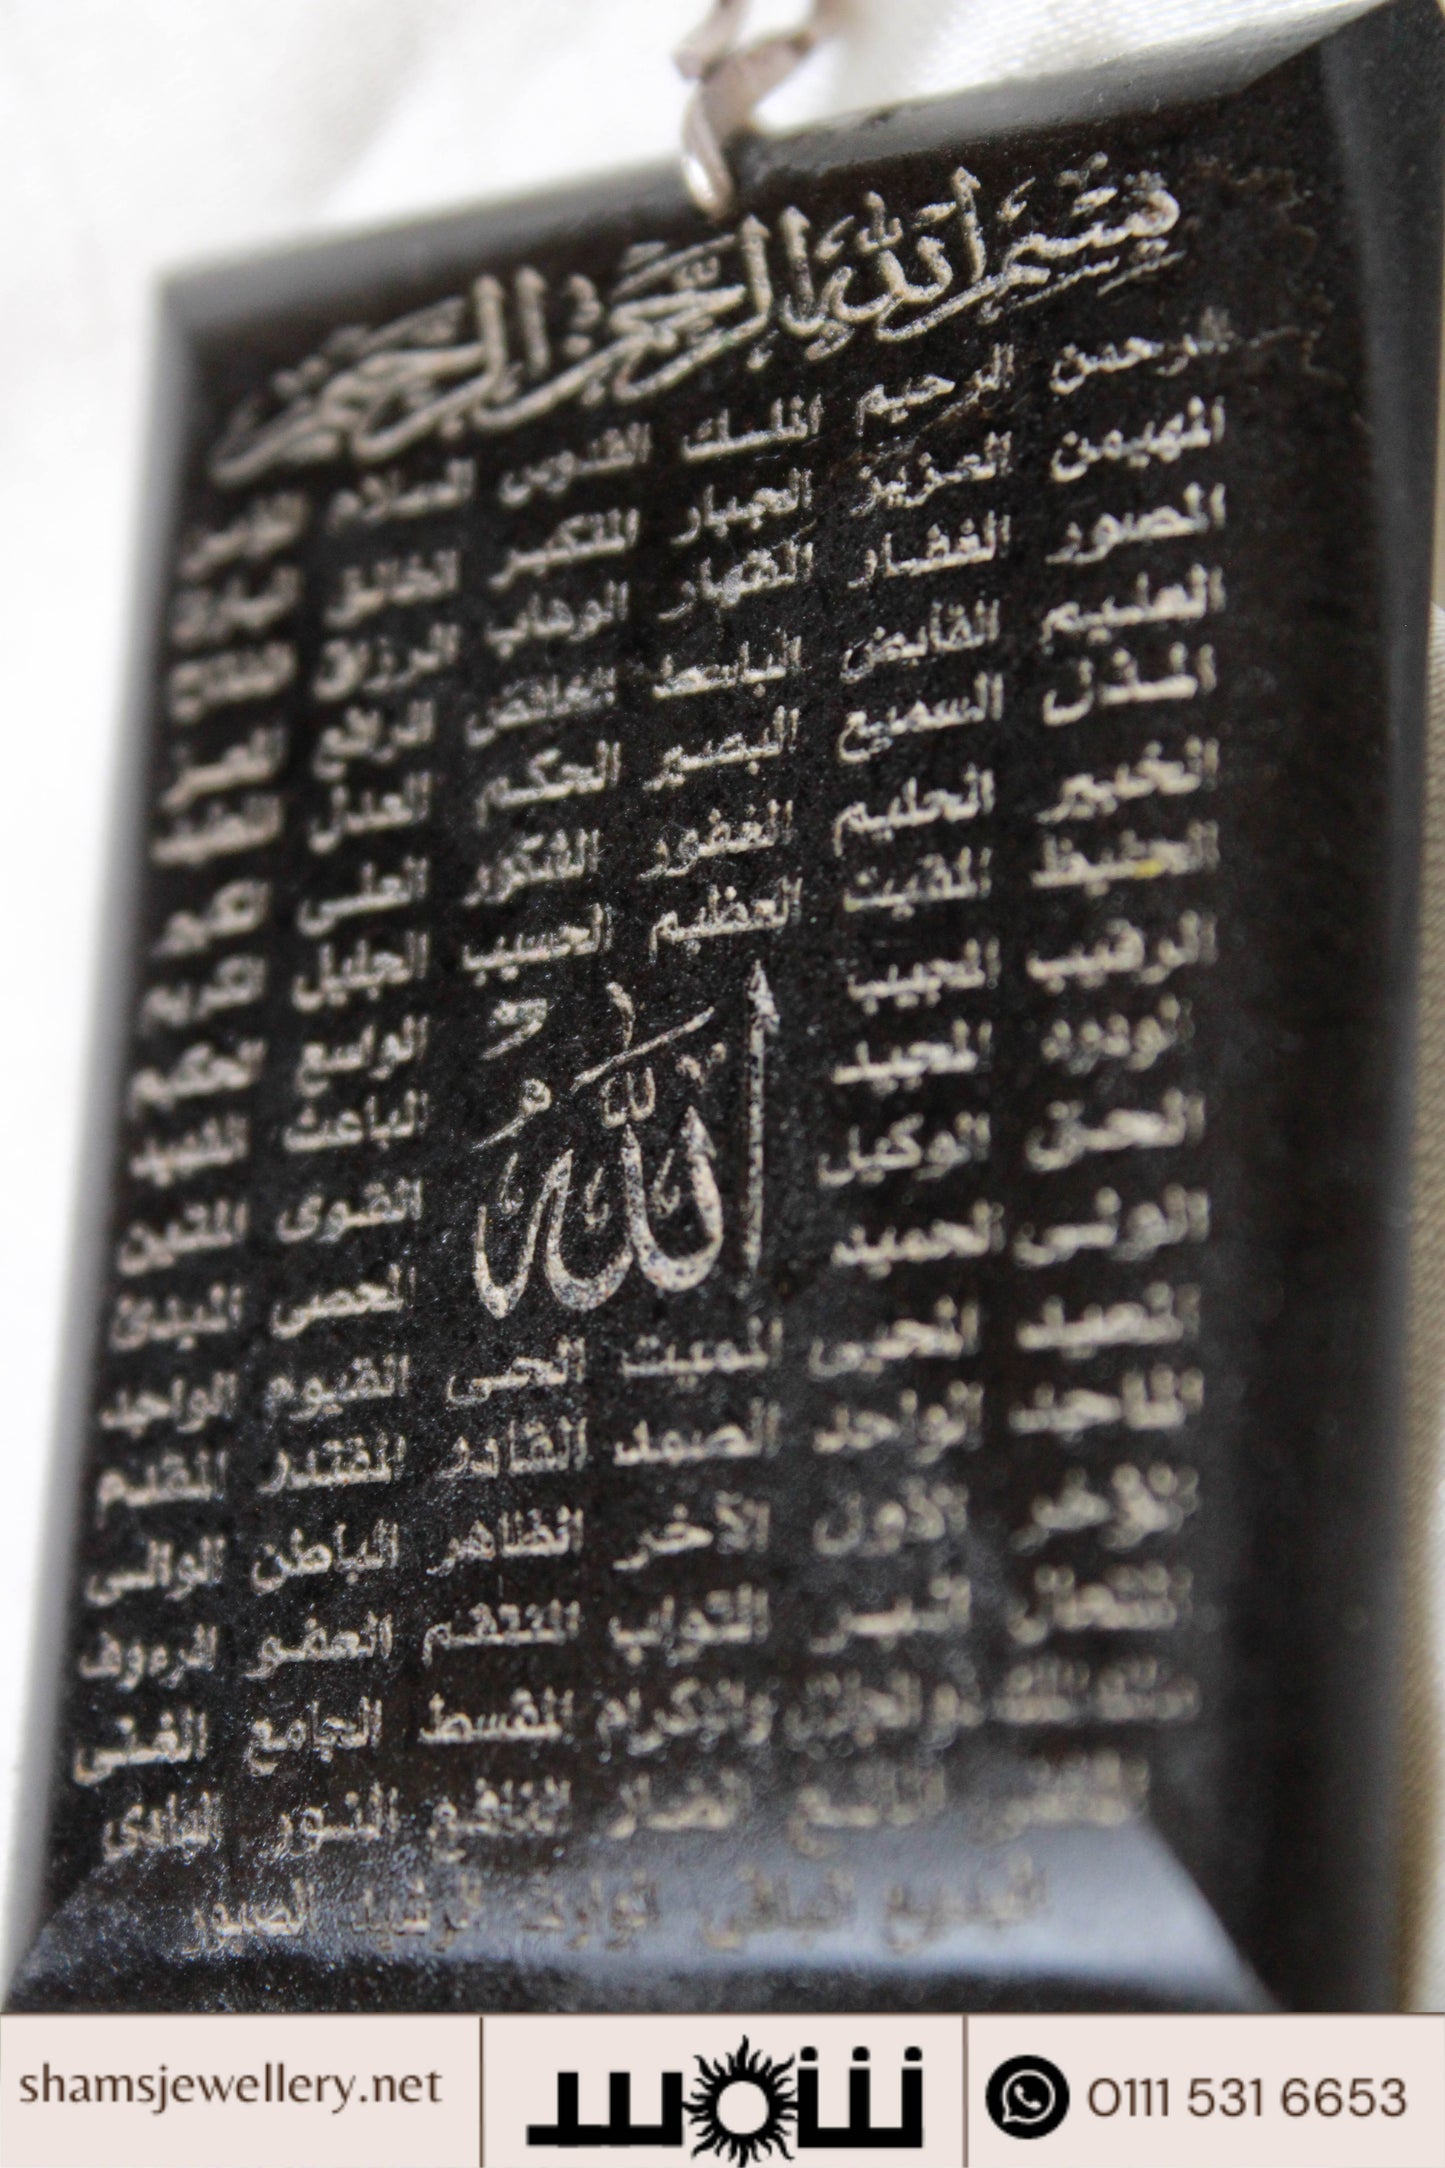 بسم الله الرحمن الرحيم
الرحمن الرحيم الملك القدوس السلام
المهيمن العزيز الجبار المتكبر الخالق
المصور الغفار القهار الوهاب الرزاق
العليم القابض الباسط الخافض الرافع المعز
المذل السميع البصير الحكم العدل اللطيف
الخبير الحليم العظيم الغفور الشكور العلى الكبير
الحفيظ المقيت الحسيب الجليل الكريم
الرقيب المجيب الواسع الحكيم
المجيد الباعث الشهيد
الله
الحق الوكيل القوى المتين
الولى الحميد المحصى المبدئ
المعيد المحيى المميت الحى القيوم الواجد
الماجد الواحد الصمد القادر المقتدر المقدم
المؤخر الأول الآخر الظاهر الباطن الوالى
المتعال البر التواب المنتقم العفو الرءوف
مالك الملك ذو الجلال والإكرام المقسط الجامع الغنى
المانع الضار النافع النور الهادى
البديع الباقى الوارث الرشيد الصبور
shamsjewellery.net
شموسـ
0111 531 6653